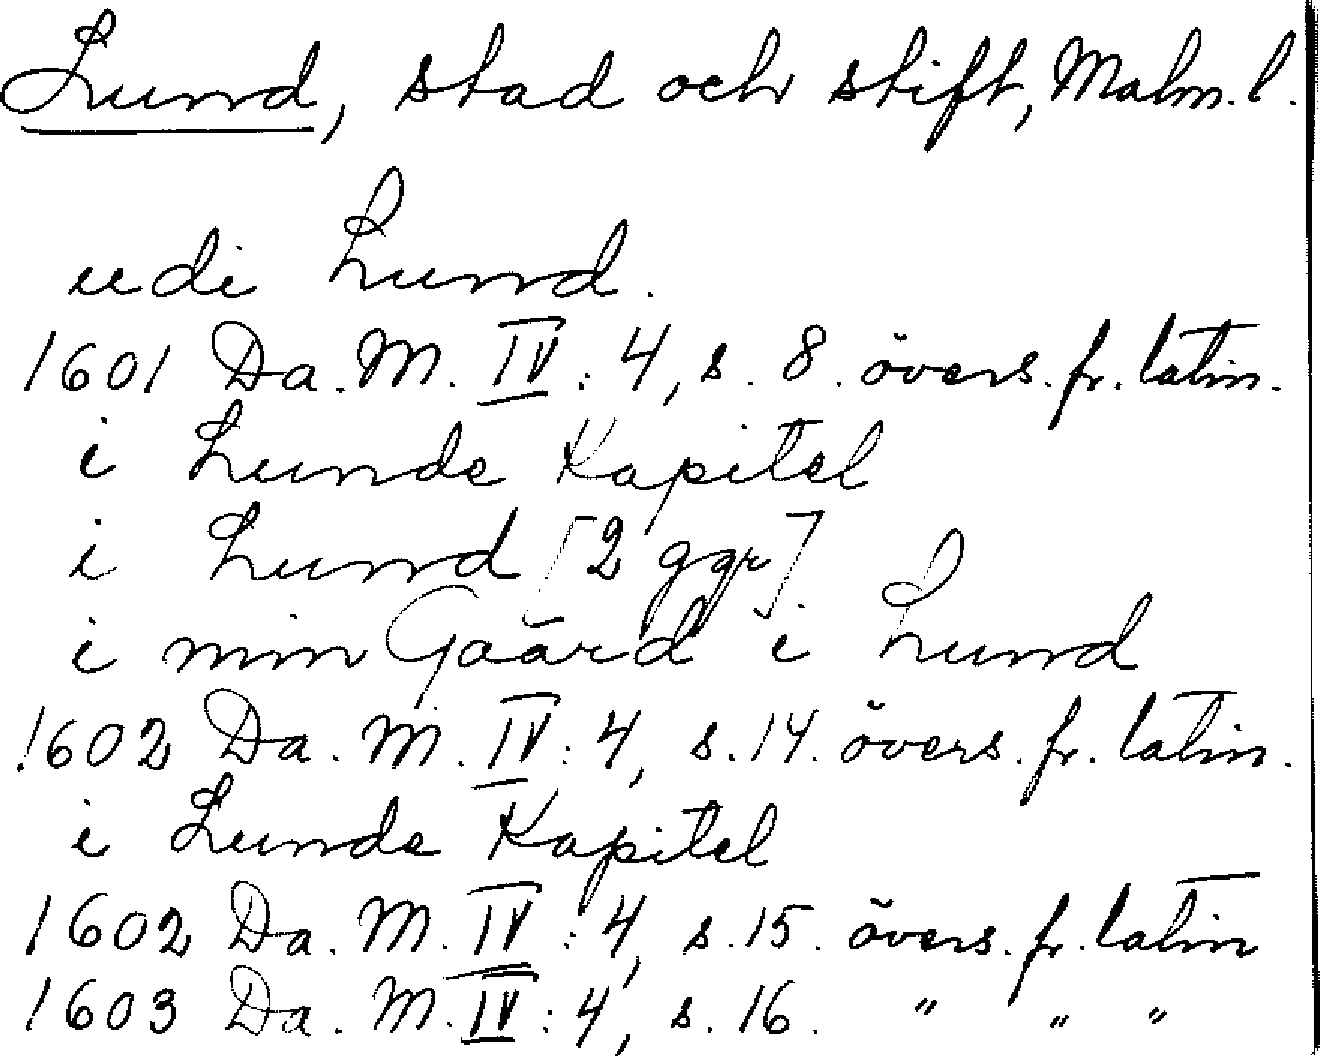 Lund, stad och stift, Malm. l.
udi Lund.
1601 Da. M. IV: 4, s. 8. övers. fr. latin.
i Lunde Kapitel
i Lund [2 ggr]
i min Gaård i Lund
1602 Da. M. IV: 4, s. 14. övers. fr. latin.
i Lunde Kapitel
1602 Da. M. IV: 4, s. 15. övers. fr. latin
1603 Da. M. IV: 4, s. 16. " " "